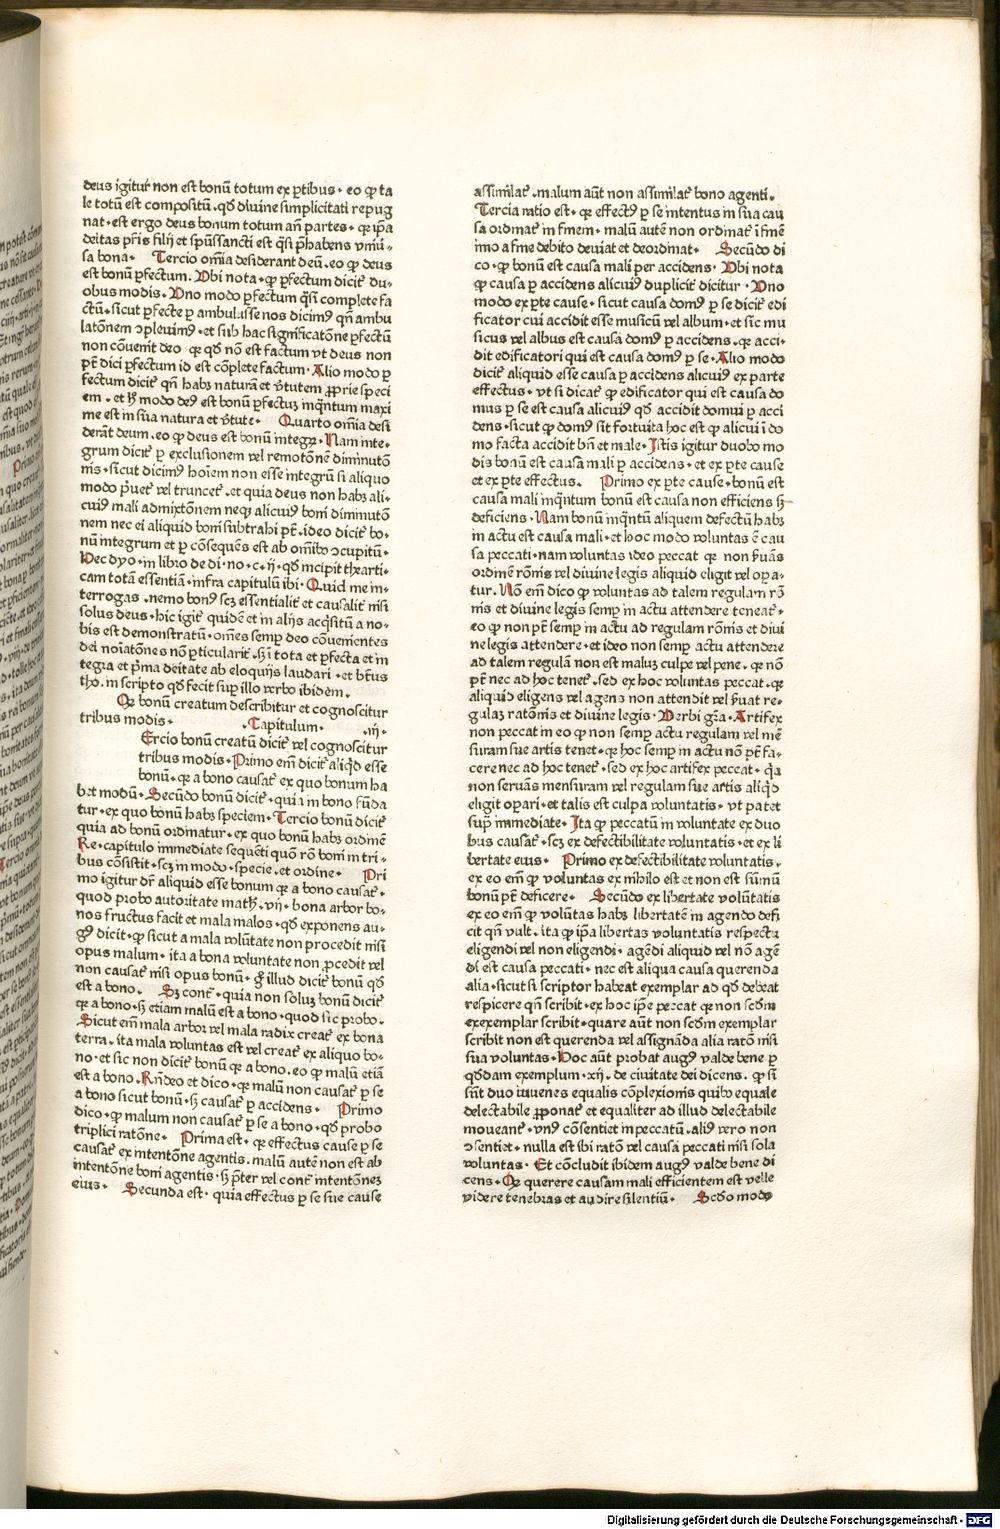 deus igitur non est bonū totum ex ꝑtibus · eo ꝙ ta
le totū est compositū . qd̄ diuine simplicitati repug
nat · est ergo deus bonum totum añ partes · ꝙ ip̄a
deitas p̄ris filij et spūssancti est q̄si p̄habens vniū-
sa bona · Tercio om̄ia desiderant deū . eo ꝙ deus
est bonū ꝑfectum . Vbi nota · ꝙ ꝑfectum dicit᷑ du-
obus modis . Vno modo ꝑfectum q̄si complete fa
ctū · sicut ꝑfecte ꝑ ambulasse nos dicimꝰ qn̄ ambu
latōnem ↄpleuimꝰ · et sub hac significatōne ꝑfectū
non cōuenit deo ꝙ qd̄ nō est factum vt deus non
pt̄ dici ꝑfectum id est cōplete factum · Alio modo ꝑ
fectum dicit᷑ qn̄ habꝫ naturā et v̄tutem ꝓprie speci
em . et hͦ modo deꝰ est bonū ꝑfectuꝫ inq̄ntum maxi
me est in sua natura et v̄tute · Quarto om̄ia desi
derāt deum . eo ꝙ deus est bonū integꝝ · Nam inte-
grum dicit᷑ ꝑ exclusionem vel remotōnē diminutō
nis · sicut dicimꝰ hoīem non esse integrū si aliquo
modo p̄uet᷑ vel truncet᷑ . et quia deus non habꝫ ali-
cuiꝰ mali admixtōnem neqꝫ alicuiꝰ boni diminutō
nem nec ei aliquid boni subtrahi pt̄ . ideo dicit᷑ bo-
nū integrum et ꝑ cōsequēs est ab om̄ibꝰ ↄcupitū ·
Hec dyo · in libro de di · no · c · ij · qd̄ incipit thearti-
cam totā essentiā · infra capitulū ibi · Quid me in-
terrogas . nemo bonꝰ scꝫ essentialit᷑ et causalit᷑ nisi
solus deus · hic igit᷑ quidē et in alijs acq̄sitū a no-
bis est demonstratū · om̄es semꝑ deo cōuenientes
dei noīatōnes nō ꝑticularit᷑ . sꝫ ī tota et ꝑfecta et in
tegra et p̄ma deitate ab eloquijs laudari · et bt̄us
tho . in scripto qd̄ fecit suꝑ illo verbo ibidem .
Qꝫ bonū creatum describitur et cognoscitur
tribus modis · . Capitulum · . iij ·
Ercio bonū creatū dicit᷑ vel cognoscitur
tribus modis · Primo em̄ dicit᷑ aliq̄d esse
bonū · ꝙ a bono causat᷑ ex quo bonum ha
bet modū · Secūdo bonū dicit᷑ · quia in bono fūda
tur · ex quo bonū habꝫ speciem · Tercio bonū dicit᷑
quia ad bonū ordinatur · ex quo bonū habꝫ ordinē
Re · capitulo immediate sequēti quō rō boni in tri-
bus cōsistit · scꝫ in modo · specie . et ordine · Pri
mo igitur dr̄ aliquid esse bonum ꝙ a bono causat᷑ ·
quod probo autoritate math . vij · bona arbor bo-
nos fructus facit et mala malos · qd̄ exponens au-
gꝰ dicit · ꝙ sicut a mala volūtate non procedit nisi
opus malum · ita a bona voluntate non ꝓcedit vel
non causat᷑ nisi opus bonū · g̊ illud dicit᷑ bonū qd̄
est a bono . Sꝫ cont᷑ · quia non soluꝫ bonū dicit᷑
ꝙ a bono · sꝫ etiam malū est a bono · quod sic probo .
Sicut em̄ mala arbor vel mala radix creat᷑ ex bona
terra . ita mala voluntas est vel creat᷑ ex aliquo bo-
no · et sic non dicit᷑ bonū ꝙ a bono . eo ꝙ malū etiā
est a bono . Rn̄deo et dico · ꝙ malū non causat᷑ ꝑ se
a bono sicut bonū · sꝫ causat᷑ ꝑ accidens · Primo
dico · ꝙ malum non causat᷑ ꝑ se a bono · qd̄ probo
triplici ratōne · Prima est · ꝙ effectus cause ꝑ se
causat᷑ ex intentōne agentis . malū autē non est ab
intentōne boni agentis · sꝫ p̄ter vel cont᷑ intentōneꝫ
eius · Secunda est · quia effectus ꝑ se sue cause
assimilat᷑ . malum aūt non assimilat᷑ bono agenti .
Tercia ratio est · ꝙ effectꝰ ꝑ se intentus in sua cau
sa ordinat᷑ in finem · malū autē non ordinat᷑ ī finē
imo a fine debito deuiat et deordinat᷑ · Secūdo di
co · ꝙ bonū est causa mali per accidens · Vbi nota
ꝙ causa ꝑ accidens alicuiꝰ duplicit᷑ dicitur · Vno
modo ex ꝑte cause · sicut causa domꝰ ꝑ se dicit᷑ edi
ficator cui accidit esse musicū vel album · et sic mu
sicus vel albus est causa domꝰ ꝑ accidens · ꝙ acci-
dit edificatori qui est causa domꝰ ꝑ se · Alio modo
dicit᷑ aliquid esse causa ꝑ accidens alicuiꝰ ex parte
effectus · vt si dicat᷑ ꝙ edificator qui est causa do
mus ꝑ se est causa alicuiꝰ qd̄ accidit domui ꝑ acci
dens · sicut ꝙ domꝰ sit fortuita hoc est ꝙ alicui ī do
mo facta accidit bn̄ et male · Istis igitur duobꝰ mo
dis bonū est causa mali ꝑ accidens · et ex ꝑte cause
et ex ꝑte effectus . Primo ex ꝑte cause · bonū est
causa mali inq̄ntum bonū est causa non efficiens sꝫ
deficiens · Nam bonū inq̄ntū aliquem defectū habꝫ
in actu est causa mali · et hoc modo voluntas ē cau
sa peccati · nam voluntas ideo peccat ꝙ non s̄uās
ordinē rōnis vel diuine legis aliquid eligit vel oꝑa-
tur . Nō em̄ dico ꝙ voluntas ad talem regulam rō
nis et diuine legis semꝑ in actu attendere teneat᷑ ·
eo ꝙ non pt̄ semꝑ in actu ad regulam rōnis et diui
ne legis attendere · et ideo non semꝑ actu attendere
ad talem regulā non est maluꝫ culpe vel pene . ꝙ nō
pt̄ nec ad hoc tenet᷑ . sed ex hoc voluntas peccat . ꝙ
aliquid eligens vel agens non attendit vel s̄uat re-
gulaꝫ ratōnis et diuine legis · Verbi gr̄a . Artifex
non peccat in eo ꝙ non semꝑ actu regulam vel mē
suram sue artis tenet · ꝙ hoc semꝑ in actu nō pt̄ fa-
cere nec ad hoc tenet᷑ · sed ex hoc artifex peccat · q̄a
non seruās mensuram vel regulam sue artis aliq̄d
eligit oꝑari · et talis est culpa voluntatis · vt patet
sup̄ immediate · Ita ꝙ peccatū in voluntate ex duo
bus causat᷑ · scꝫ ex defectibilitate voluntatis · et ex li
bertate eius · Primo ex defectibilitate voluntatis .
ex eo em̄ ꝙ voluntas ex nihilo est et non est sūmū
bonū pt̄ deficere · Secūdo ex libertate volūtatis
ex eo em̄ ꝙ volūtas habꝫ libertatē in agendo defi
cit qn̄ vult . ita ꝙ ip̄a libertas voluntatis respectu
eligendi vel non eligendi · agēdi aliquid vel nō agē
di est causa peccati · nec est aliqua causa querenda
alia · sicut si scriptor habeat exemplar ad qd̄ debeat
respicere qn̄ scribit · ex hoc ip̄e peccat ꝙ non scdm̄
exexemplar scribit · quare aūt non scdm̄ exemplar
scribit non est querenda vel assignāda alia ratō nisi
sua voluntas · Hoc aūt probat augꝰ valde bene ꝑ
qd̄dam exemplum · xij . de ciuitate dei dicens . ꝙ si
sūt duo iuuenes equalis cōplexionis quibꝰ equale
delectabile ꝓponat᷑ et equaliter ad illud delectabile
moueant᷑ · vnꝰ cōsentiet in peccatū . aliꝰ vero non
ↄsentiet · nulla est ibi ratō vel causa peccati nisi sola
voluntas · Et cōcludit ibidem augꝰ valde bene di
cens · Qꝫ querere causam mali efficientem est velle
videre tenebras et audire silentiū · Scdo modo
Digitalisierung gefördert durch die Deutsche Forschungsgemeinschaft - DFG